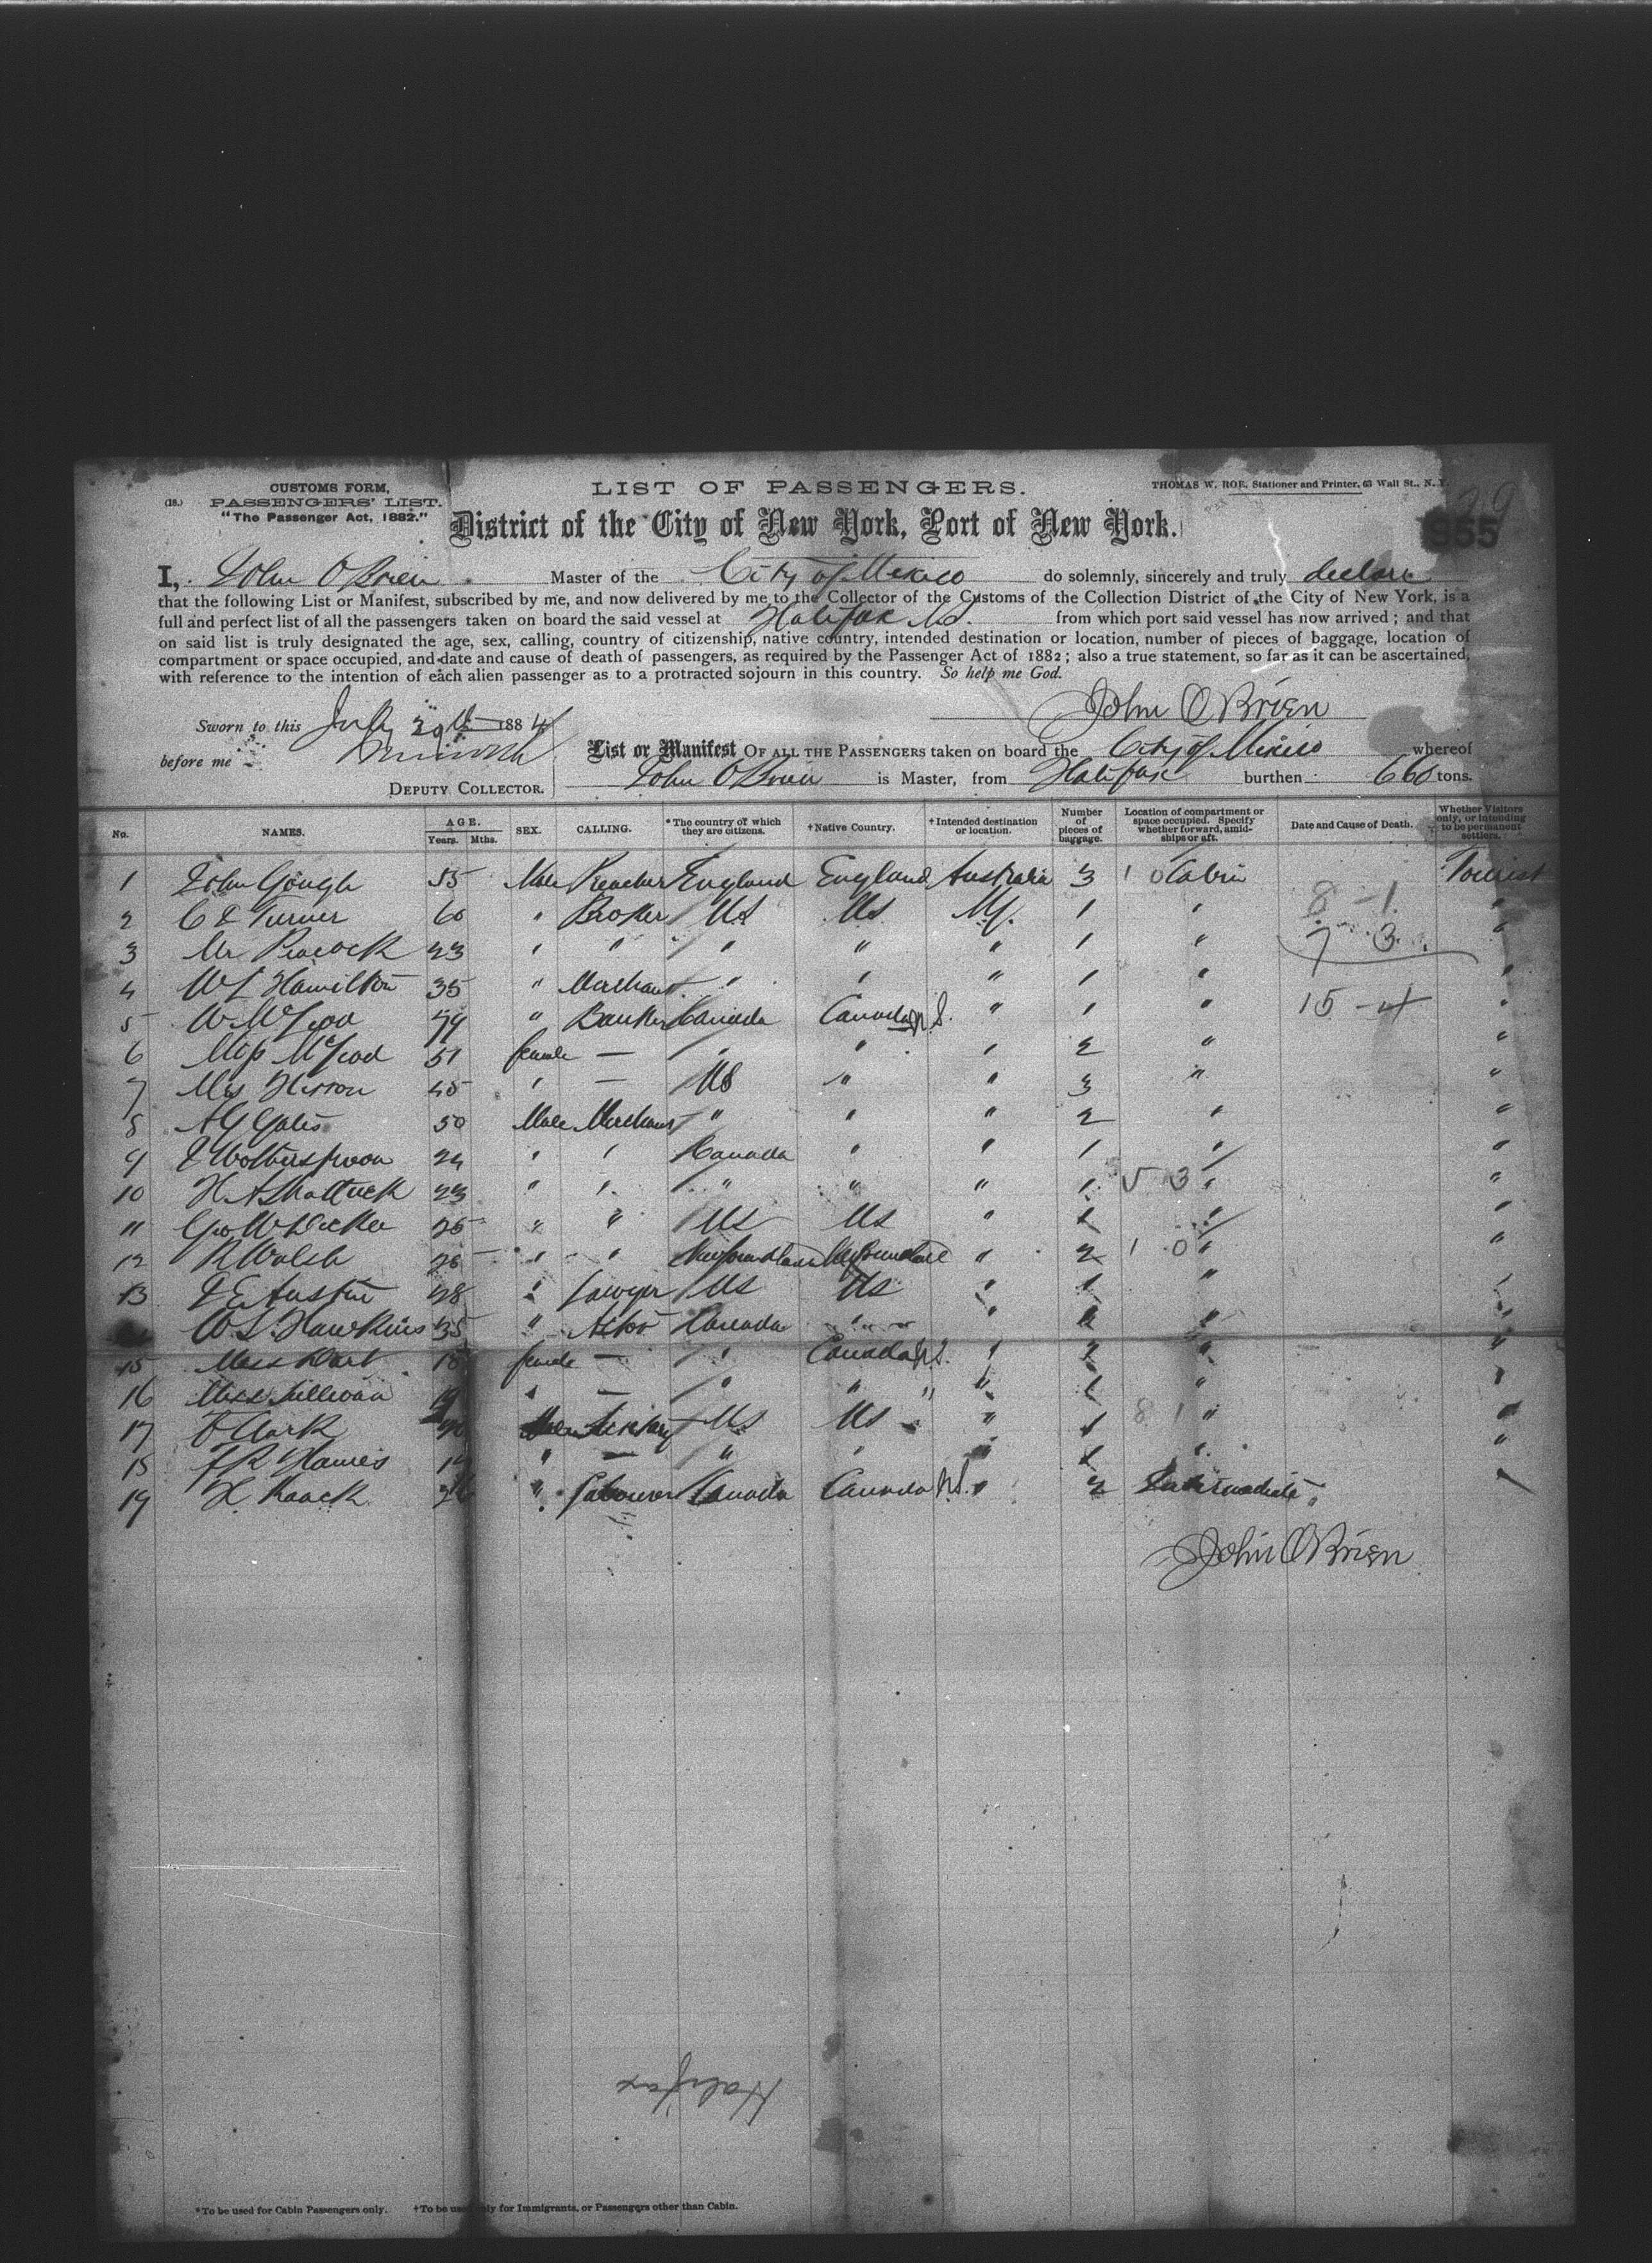 CUSTOMS FORM,
(18.) PASSENGERS' LIST.
"The Passenger Act, 1882."
LIST OF PASSENGERS.
THOMAS W. ROE, Stationer and Printer, 63 Wall St., N.Y.
29
955
District of the City of New York, Port of New York.
I, John O'Brien Master of the City of Mexico do solemnly, sincerely and truly declare
that the following List or Manifest, subscribed by me, and now delivered by me to the Collector of the Customs of the Collection District of the City of New York, is a
full and perfect list of all the passengers taken on board the said vessel at Halifax N.S. from which port said vessel has now arrived; and that
on said list is truly designated the age, sex, calling, country of citizenship, native country, intended destination or location, number of pieces of baggage, location of
compartment or space occupied, and date and cause of death of passengers, as required by the Passenger Act of 1882; also a true statement, so far as it can be ascertained,
with reference to the intention of each alien passenger as to a protracted sojourn in this country. So help me God.
John O'Brien
Sworn to this July 29th 1884
before me
DEPUTY COLLECTOR.
List or Manifest OF ALL THE PASSENGERS taken on board the City of Mexico whereof
John O'Brien is Master, from Halifax burthen 660 tons.
No. NAMES. AGE. Years. Mths. SEX. CALLING. *The country of which they are citizens. †Native Country. †Intended destination or location. Number of pieces of baggage. Location of compartment or space occupied. Specify whether forward, amidships or aft. Date and Cause of Death. Whether Visitors only, or intending to be permanent settlers.
1 John Gough 55 Male Preacher England England Australia 3 1 0 Cabin Tourist
2 C E Turner 60 " Broker US US NY. 1 " 8 - 1 "
3 Mr Peacock 23 " " " " " 1 " 7 3 "
4 W L Hamilton 35 " Merchant " " " 1 " "
5 W McLeod 79 " Banker Canada Canada N.S. " 1 " 15 - 4 "
6 Miss McLeod 51 female — " " " 2 " "
7 Mrs 45 " — US " " 3 " "
8 A G Yates 50 Male Merchant " " " 2 " "
9 J Wotherspoon 24 " " Canada " " 1 " "
10 H. A Shattuck 23 " " " " " 1 5 3 " "
11 Geo W 26 " " US US " 1 " "
12 R Walsh 26 " " Newfoundland Newfoundland " 2 1 0 " "
13 J E Austin 28 " Lawyer US US " 1 " "
W L Hawkins 35 " Canada " " 1 " "
15 Miss 18 female — " Canada N.S. " 2 " "
16 Miss Sullivan 19 " — " " " " 1 " "
17 F Clark Male US US " 1 8 1 " "
18 F R 19 " — " " " 1 " "
19 H 26 " Labourer Canada Canada N.S. " 2 Intermediate "
John O'Brien
Halifax
*To be used for Cabin Passengers only. †To be used only for Immigrants, or Passengers other than Cabin.